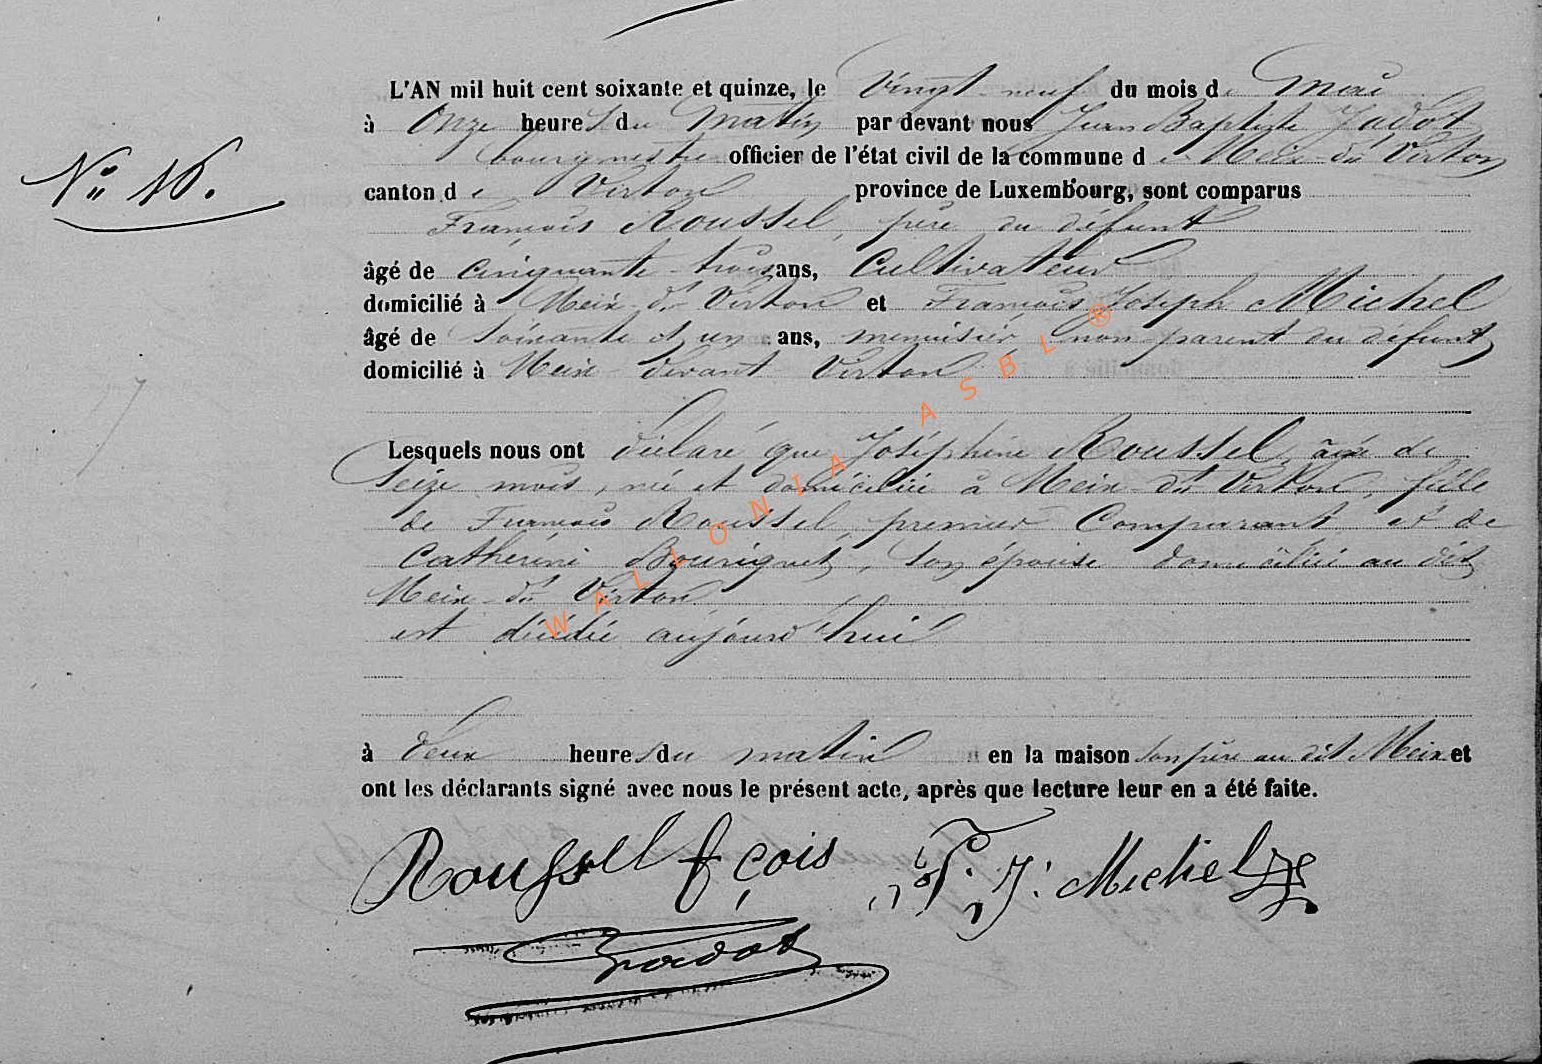 L'AN mil huit cent soixante et quinze, le Vingt-neuf du mois de Mai
à Onze heures du Matin par devant nous Jean Baptiste Jadot
bourgmestre officier de l'état civil de la commune de Meix-dt Virton
N° 16.
canton de Virton province de Luxembourg, sont comparus
François Roussel, père du défunt
âgé de cinquante-trois ans, Cultivateur
domicilié à Meix-dt Virton et François Joseph Michel
âgé de soixante et un ans, menuisier, non parent du défunt
domicilié à Meix-devant-Virton
Lesquels nous ont déclaré que Joséphine Roussel, âgée de
Seize mois, née et domiciliée à Meix-dt Virton, fille
de François Roussel, premier Comparant et de
Catherine son épouse domiciliée au dit
Meix-dt Virton
est décédée aujourd'hui
à deux heures du matin en la maison son père au dit Meix et
ont les déclarants signé avec nous le présent acte, après que lecture leur en a été faite.
Roussell fçois F. J: Michel
Jadot
WALLONIA ASBL ®